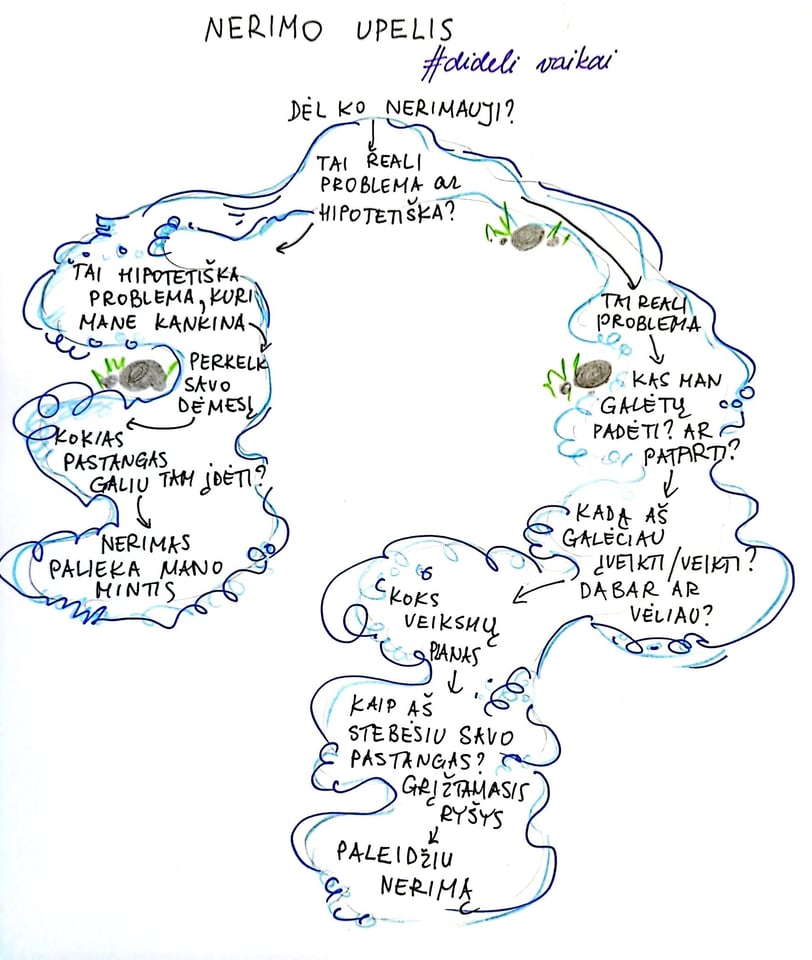 NERIMO UPELIS
#dideli vaikai
DĖL KO NERIMAUJI?
TAI REALI
PROBLEMA ar
HIPOTETIŠKA?
TAI HIPOTETIŠKA
PROBLEMA, KURI
MANE KANKINA
PERKELK
SAVO
DĖMESĮ
KOKIAS
PASTANGAS
GALIU TAM ĮDĖTI?
NERIMAS
PALIEKA MANO
MINTIS
TAI REALI
PROBLEMA
KAS MAN
GALĖTŲ
PADĖTI? AR
PATARTI?
KADĄ AŠ
GALĖČIAU
ĮVEIKTI/VEIKTI?
DABAR AR
VĖLIAU?
KOKS
VEIKSMŲ
PLANAS
KAIP AŠ
STEBĖSIU SAVO
PASTANGAS?
GRĮŽTAMASIS
RYŠYS
PALEIDŽIU
NERIMĄ